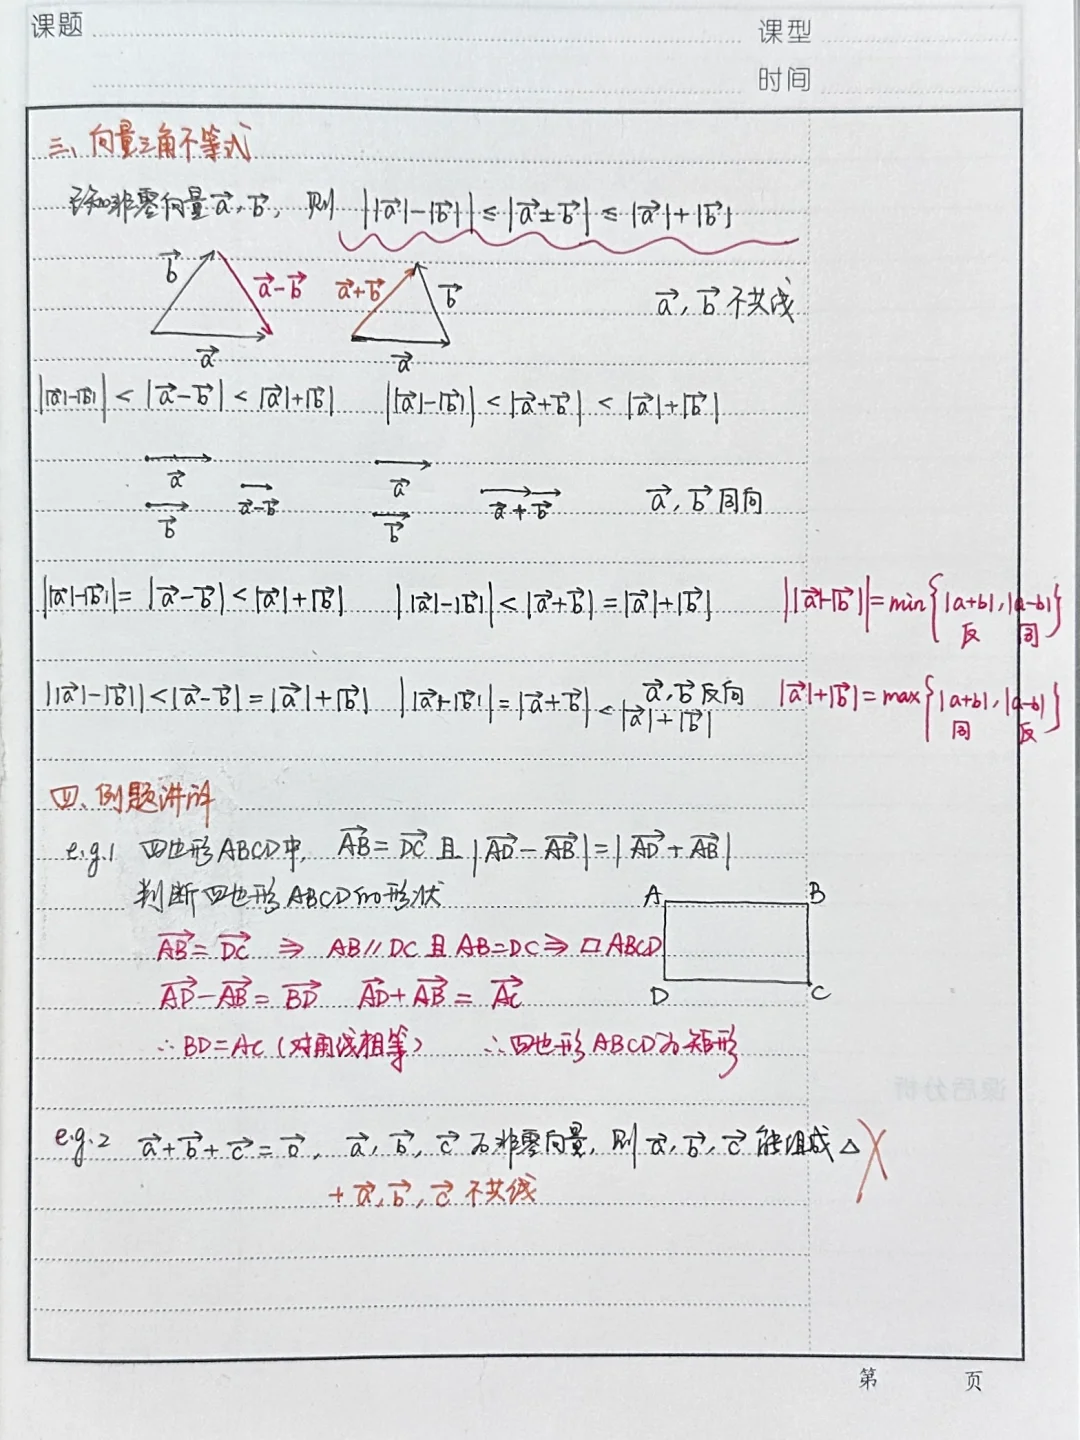 课题
课型
时间
三、向量三角不等式
已知非零向量a⃗, b⃗, 则 ||a⃗|-|b⃗|| ≤ |a⃗±b⃗| ≤ |a⃗|+|b⃗|
b⃗ a⃗-b⃗ a⃗+b⃗ b⃗ a⃗, b⃗ 不共线
a⃗ a⃗
||a⃗|-|b⃗|| < |a⃗-b⃗| < |a⃗|+|b⃗| ||a⃗|-|b⃗|| < |a⃗+b⃗| < |a⃗|+|b⃗|
a⃗ a⃗-b⃗ a⃗ a⃗+b⃗ a⃗, b⃗ 同向
b⃗ b⃗
||a⃗|-|b⃗|| = |a⃗-b⃗| < |a⃗|+|b⃗| ||a⃗|-|b⃗|| < |a⃗+b⃗| = |a⃗|+|b⃗| ||a⃗|-|b⃗|| = min{|a+b|, |a-b|}
反 同
a⃗, b⃗ 反向
||a⃗|-|b⃗|| < |a⃗-b⃗| = |a⃗|+|b⃗| ||a⃗|-|b⃗|| = |a⃗+b⃗| < |a⃗|+|b⃗| |a⃗|+|b⃗| = max{|a+b|, |a-b|}
同 反
四、例题讲讲
e.g.1 四边形ABCD中, AB⃗ = DC⃗ 且 |AD⃗ - AB⃗| = |AD⃗ + AB⃗|
判断四边形ABCD的形状
A B
AB⃗ = DC⃗ ⇒ AB∥DC 且 AB=DC ⇒ □ABCD
AD⃗-AB⃗ = BD⃗ AD⃗+AB⃗ = AC⃗
D C
∴BD=AC (对角线相等) ∴四边形ABCD为矩形
e.g.2 a⃗+b⃗+c⃗=0⃗, a⃗, b⃗, c⃗ 为非零向量, 则a⃗, b⃗, c⃗ 能组成△ ╳
+ a⃗, b⃗, c⃗ 不共线
第 页